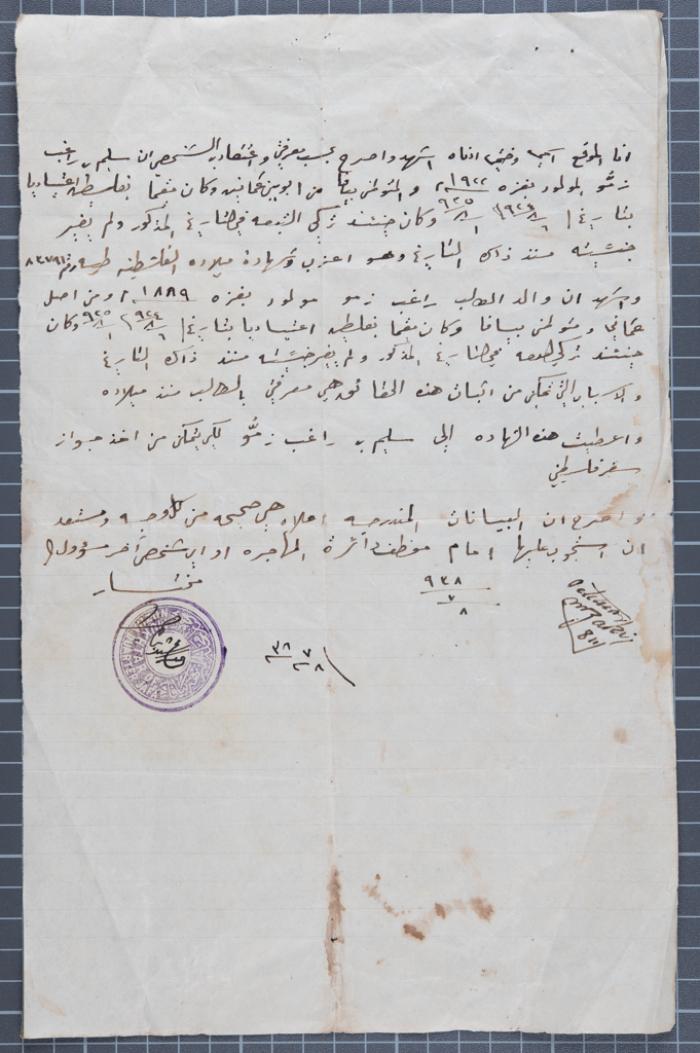 انا الموقع اسمي وختمي ادناه اشهد واصرح بحسب معرفتي واعتقادي الشخصي ان سليم بن راغب
زمُّو المولود بغزه ١٩٢٢ والمتوطن يافا من ابوين عثمانيين وكان مقيما بفلسطين اعتياديا
بتاريخ ٦/٨/٩٢٤ ١/٨/٩٢٥ وكان حينئذ تركي التبعه في التاريخ المذكور ولم يغير
جنسيته منذ ذلك التاريخ وهو اعزب وشهادة ميلاده الفلسطينيه
واشهد ان والد الطالب راغب زمو مولود بغزه ١٨٨٩ ومن اصل
عثماني ومتوطن بيافا وكان مقيما بفلسطين اعتياديا بتاريخ ٦/٨/٩٢٤ ١/٨/٩٢٥ وكان
حينئذ تركي التبعه في التاريخ المذكور ولم يغير جنسيته منذ ذلك التاريخ
والاسباب التي تمكني من اثبات هذه الحقائق هي معرفتي بالطالب منذ ميلاده
واعطيت هذه الشهاده الى سليم بن راغب زمُّو لكي يتمكن من اخذ جواز
سفر فلسطيني
واصرح ان البيانات المندرجه اعلاه هي صحيحه من كل وجه ومستعد
ان استجوب عليها امام موظف دائرة المهاجره او اي شخص آخر مسؤول
مختار
٩٣٨
٧
٨